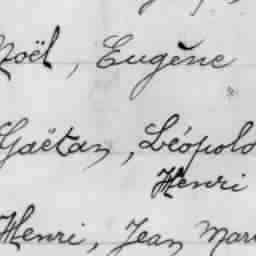 Noël, Eugène
Gaëtan, Léopold
Henri
Henri, Jean Mari